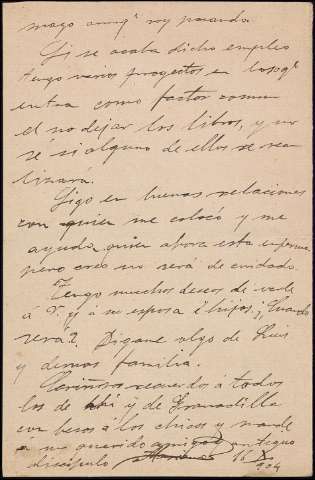 mago aunqᵉ voy pasando
Si se acaba dicho empleo
tengo varios proyectos en los qᵉ
entra como factor comun
el no dejar los libros, y no
sé si alguno de ellos se rea
lizará.
Sigo en buenas relaciones
con quien me colocó y me
ayuda, quien ahora esta enfermo
pero creo no será de cuidado.
Tengo muchos deseos de verle
á V. y á su esposa é hijos; ¿Cuando
será?. Digame algo de Luis
y demas familia.
Cariñosos recuerdos á todos
los de ahi y de Granadilla
con besos á los chicos y mande
á su querido amigo y antiguo
discipulo
16 X
904